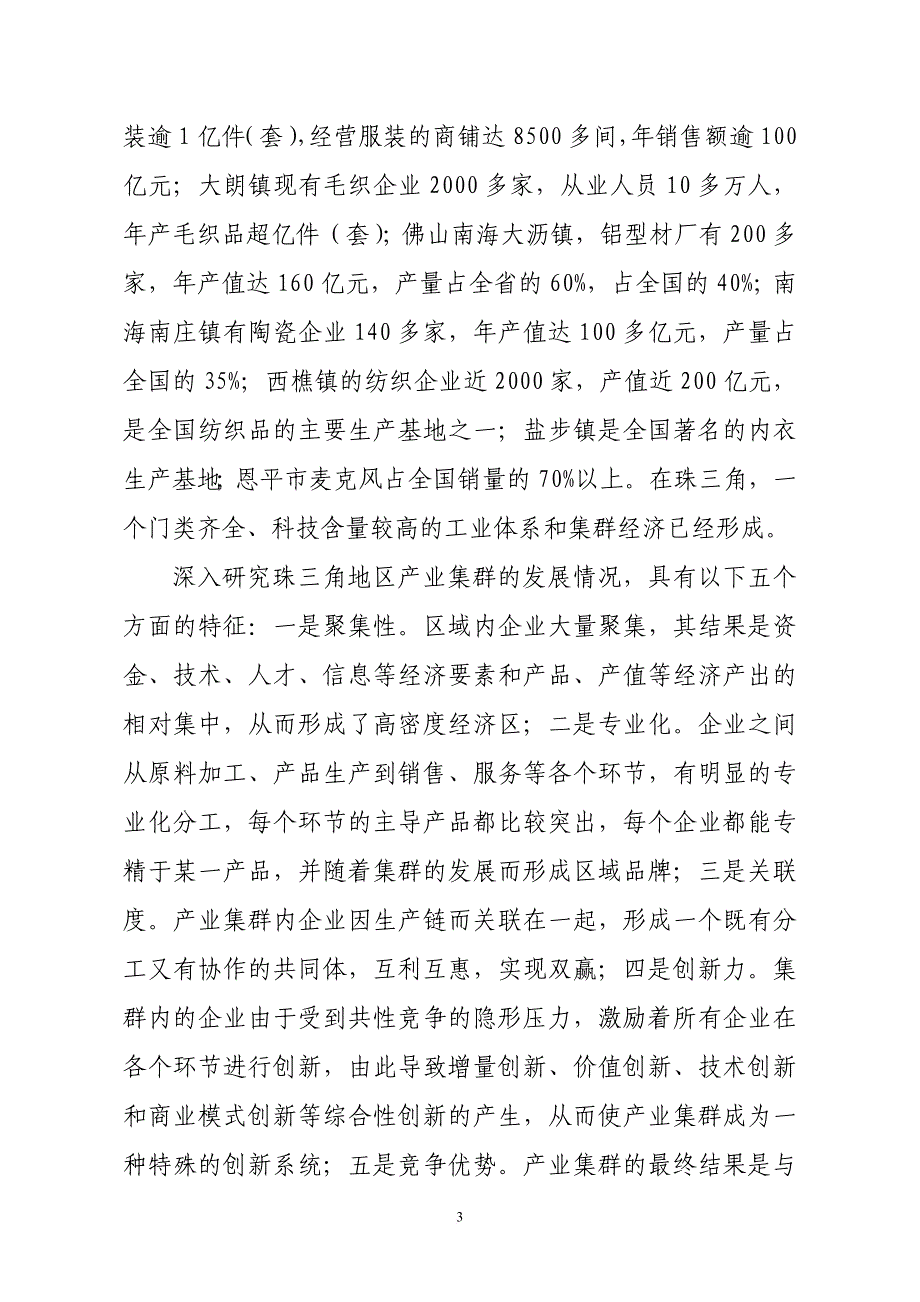 装逾1亿件(套),经营服装的商铺达8500多间,年销售额逾100
亿元；大朗镇现有毛织企业2000多家，从业人员10多万人，
年产毛织品超亿件（套）；佛山南海大沥镇，铝型材厂有200多
家，年产值达160亿元，产量占全省的60%，占全国的40%；南
海南庄镇有陶瓷企业140多家，年产值达100多亿元，产量占
全国的35%；西樵镇的纺织企业近2000家，产值近200亿元，
是全国纺织品的主要生产基地之一；盐步镇是全国著名的内衣
生产基地；恩平市麦克风占全国销量的70%以上。在珠三角，一
个门类齐全、科技含量较高的工业体系和集群经济已经形成。
深入研究珠三角地区产业集群的发展情况，具有以下五个
方面的特征：一是聚集性。区域内企业大量聚集，其结果是资
金、技术、人才、信息等经济要素和产品、产值等经济产出的
相对集中，从而形成了高密度经济区；二是专业化。企业之间
从原料加工、产品生产到销售、服务等各个环节，有明显的专
业化分工，每个环节的主导产品都比较突出，每个企业都能专
精于某一产品，并随着集群的发展而形成区域品牌；三是关联
度。产业集群内企业因生产链而关联在一起，形成一个既有分
工又有协作的共同体，互利互惠，实现双赢；四是创新力。集
群内的企业由于受到共性竞争的隐形压力，激励着所有企业在
各个环节进行创新，由此导致增量创新、价值创新、技术创新
和商业模式创新等综合性创新的产生，从而使产业集群成为一
种特殊的创新系统；五是竞争优势。产业集群的最终结果是与
3